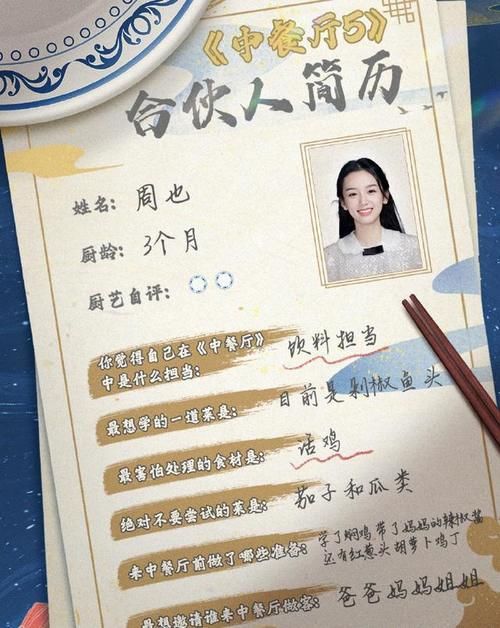 《中餐厅5》
合伙人简历
姓名：周也
厨龄：3个月
厨艺自评：
你觉得自己在《中餐厅》
中是什么担当：
饮料担当
最想学的一道菜是：
目前是剁椒鱼头
最害怕处理的食材是：
活鸡
绝对不要尝试的菜是：
茄子和瓜类
来中餐厅前做了哪些准备：
学了焖鸡 带了妈妈的辣椒酱
还有红葱头胡萝卜鸡丁
最想邀请谁来中餐厅做客：
爸爸妈妈姐姐